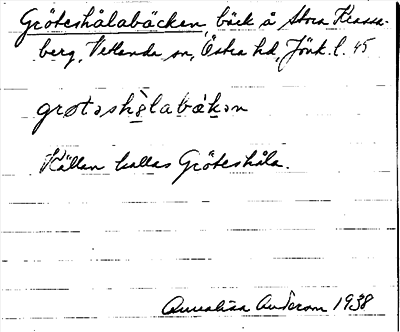 Gröteshålabäcken, bäck å Stora Krassa-
berg, Vetlanda sn, Östra hd, Jönk. l. 45
grøtəshålabäkən
Källan kallas Gröteshåla.
Annalisa Anderson 1938